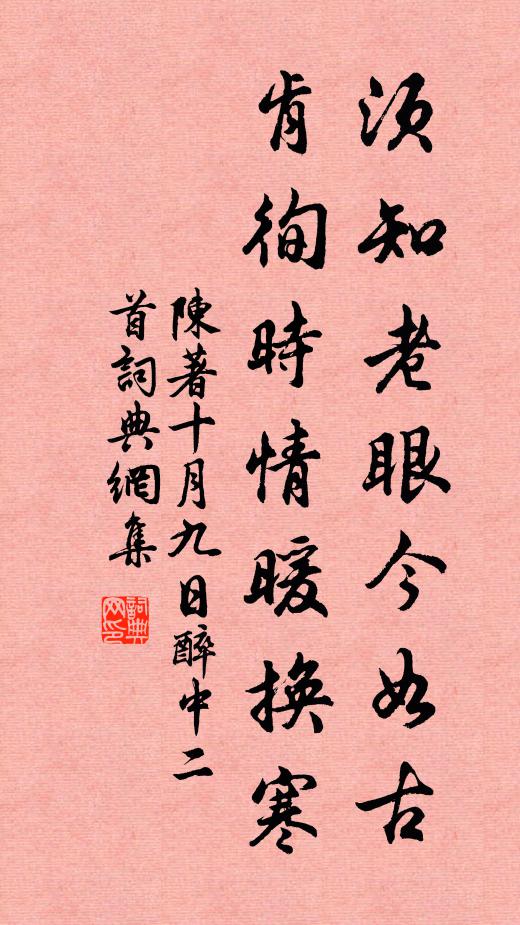 須知老眼今如古
肯徇時情暖換寒
陳著十月九日醉中二
首詞典網集
詞典
网印